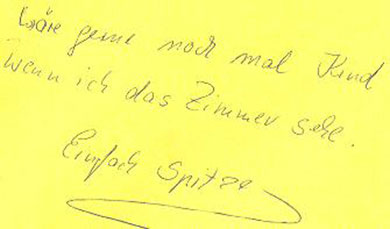 Wäre gerne noch mal Kind
wenn ich das Zimmer sehe.
Einfach Spitze